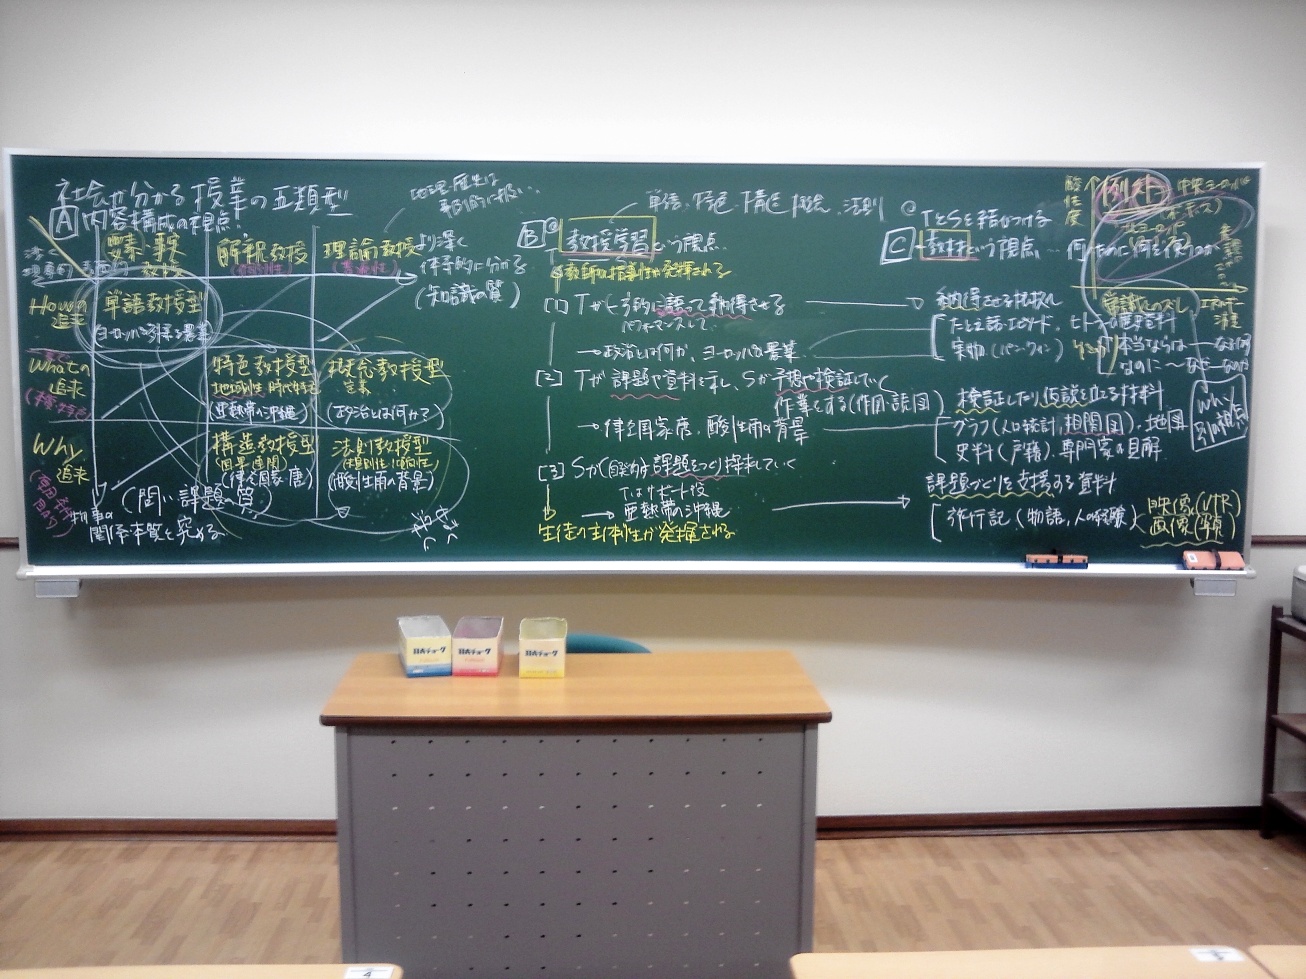 社会が分かる授業の五類型
A 内容構成の視点
要素・事実教授
解釈教授
(個別性)
理論教授
(普遍性)
より深く
体系的に分かる
(知識の質)
Howの追求
単語教授型
ヨーロッパの引里る農業
Whatの追求
(本質・特色)
特色教授型
地域個性 時代特色
(亜熱帯の沖縄)
概念教授型
定義
(政治とは何か?)
Whyの追求
構造教授型
(因果連関)
(律令国家・唐)
法則教授型
(規則性・傾向性)
(酸性雨の背景)
(問い・課題の質)
物事の
関係・本質を究める
単語、特色、構造、概念、法則
B 教授学習という視点
教師の指導性が発揮される
[1] Tが一方的に語って納得させる
パフォーマンスして
→政治とは何か、ヨーロッパの農業
[2] Tが課題や資料を示し、Sが予想や検証していく
作業とする(作図・読図)
→律令国家唐、酸性雨の背景
[3] Sが(自発的な)課題をつくり探求していく
Tはサポート役
→亜熱帯の沖縄
生徒の主体性が発揮される
TとSを結びつける
C 教材という視点… 何のために何を使うのか
納得させる
たとえ話・エピソード、
実物(パン・ワイン)
検証したり仮説を立てる材料
グラフ(人口統計、相関図)、地図
史料(戸籍)、専門家の見解
課題づくりを支援する資料
旅行記(物語、人の経験)
映像(VTR)
画像(写真)
酸性度
例外
常識とのズレ
エネルギー消費
本当ならば―なはず
なのに〜なぜ―なのか
Why
別の視点
日本チョーク
日本チョーク
日本チョーク